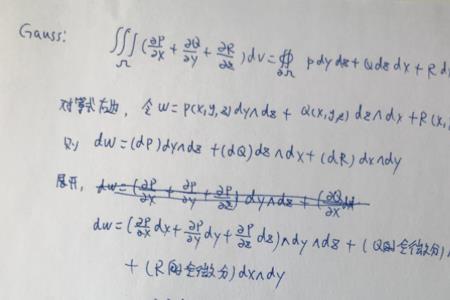 Gauss: ∭_Ω (∂P/∂x + ∂Q/∂y + ∂R/∂z) dV = ∯_∂Ω P dy dz + Q dz dx + R d
对等式右边, 令 w = P(x,y,z) dy∧dz + Q(x,y,z) dz∧dx + R(x,
则 dw = (dP) dy∧dz + (dQ) dz∧dx + (dR) dx∧dy
展开, dw = (∂P/∂x + ∂P/∂y + ∂P/∂z) dy∧dz + (∂Q/∂x
dw = (∂P/∂x dx + ∂P/∂y dy + ∂P/∂z dz)∧dy∧dz + (Q的全微分)
+ (R的全微分) dx∧dy